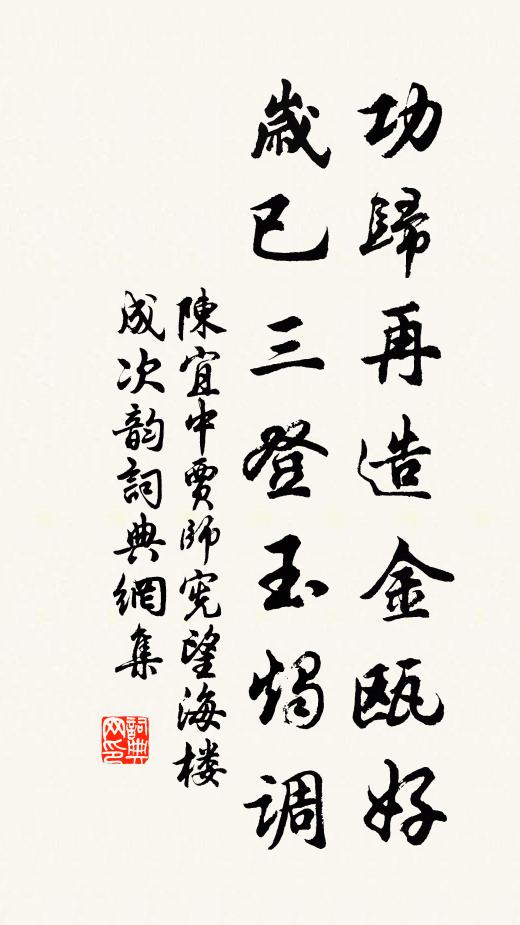 功歸再造金甌好
歲已三登玉燭调
陳宜中賈師宪望海楼
成次韵詞典網集
詞典网印